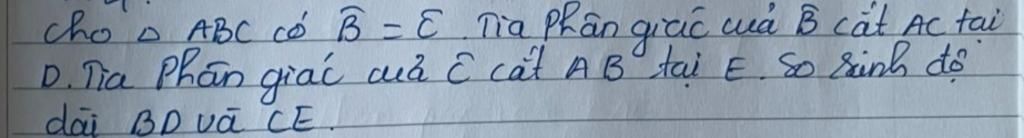 Cho △ ABC có B̂ = Ĉ. Tia phân giác của B̂ cắt AC tại
D. Tia Phân giác của Ĉ cắt AB tại E. So sánh độ
dài BD và CE.